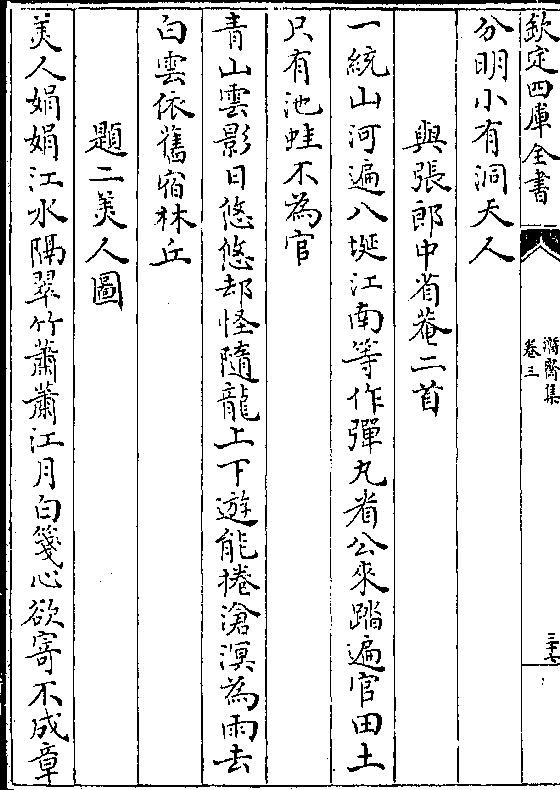 欽定四庫全書
潛齋集
卷三
三十七
分明小有洞天人
與張郎中省菴二首
一統山河遍八埏江南等作彈丸看公來踏遍官田土
只有池蛙不為官
青山雲影日悠悠却怪隨龍上下遊能捲滄溟為雨去
白雲依舊宿林丘
題二美人圖
美人娟娟江水隔翠竹蕭蕭江月白箋心欲寄不成章